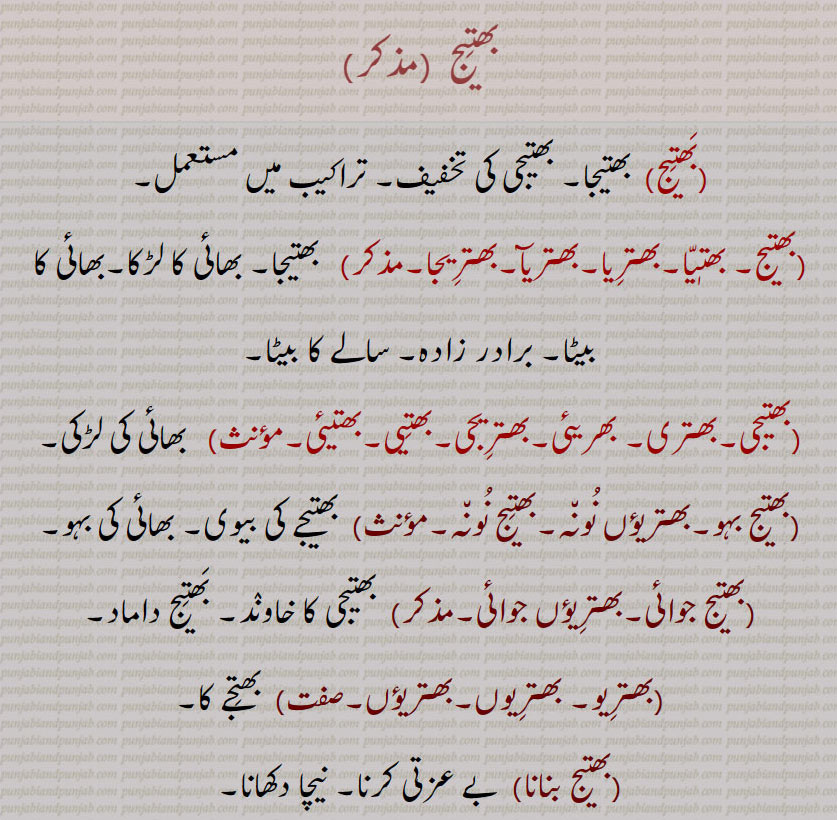 بھتیج (مذکر)
(بَھتِیج) بھتیجا۔ بھتیجی کی تخفیف۔ تراکیب میں مستعمل۔
(بھتیج۔ بھتیّا۔بھترِیا۔بھتریآ۔بھترِیجا۔مذکر) بھتیجا۔ بھائی کا لڑکا۔بھائی کا
بیٹا۔ برادر زادہ۔ سالے کا بیٹا۔
(بھتیجی۔بھتری۔ بھریئی۔بھترِیجی۔بھتیی۔بھتیئی۔مؤنث) بھائی کی لڑکی۔
(بھتیج بہو۔بھتریؤں نُونّہ۔بھتیج نُونّہ۔مؤنث) بھتیجے کی بیوی۔ بھائی کی بہو۔
(بھتیج جوائی۔بھترِیؤں جوائی۔مذکر) بھتیجی کا خاوند۔ بَھتِیج داماد۔
(بھترِیو۔ بھترِیوں۔بھتریؤں۔صفت) بھتیجے کا۔
(بھتیج بنانا) بے عزتی کرنا۔ نیچا دکھانا۔